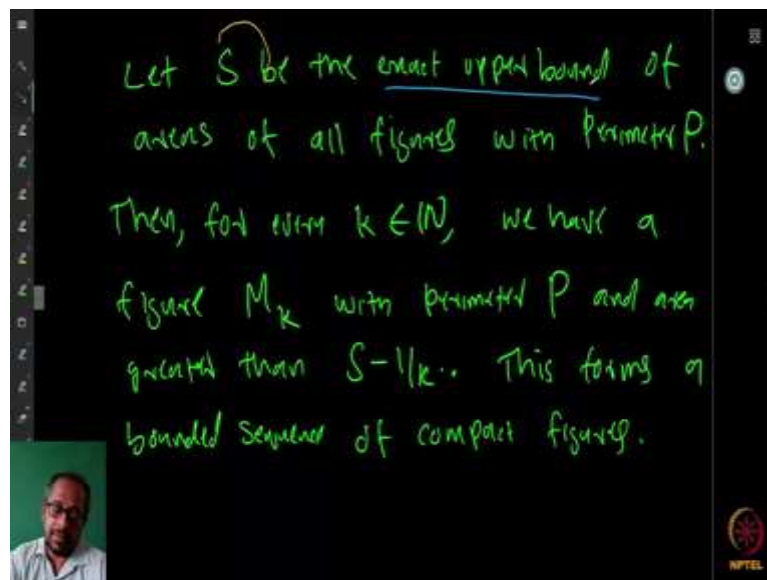 Let S be the exact upper bound of
areas of all figures with Perimeter P.
Then, for every k ∈ ℕ, we have a
figure M_k with perimeter P and area
greater than S-1/k. This forms a
bounded sequence of compact figures.
NPTEL